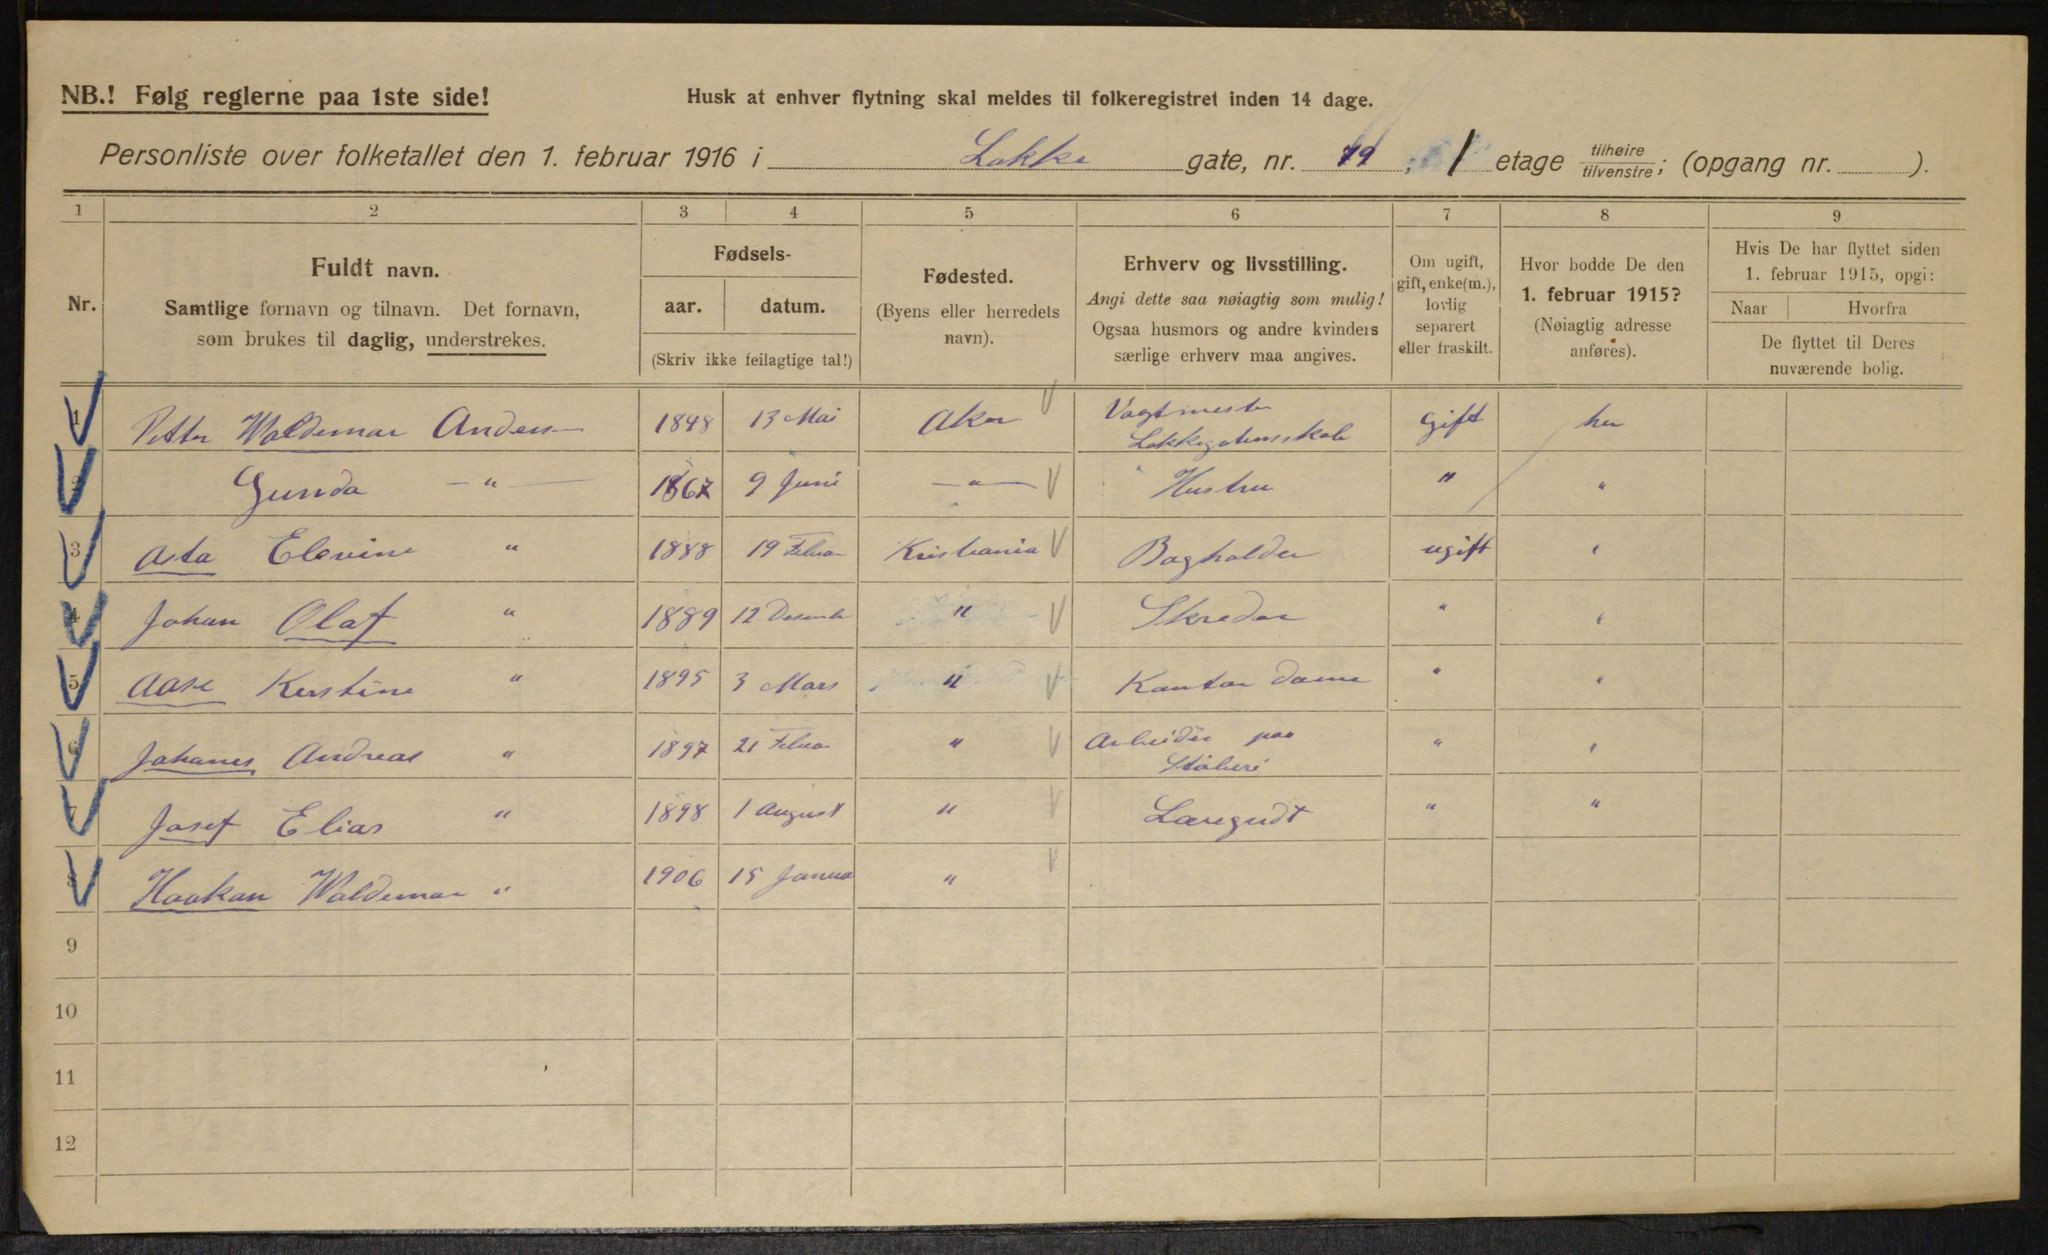 NB.! Følg reglerne paa 1ste side!
Husk at enhver flytning skal meldes til folkeregistret inden 14 dage.
Personliste over folketallet den 1. februar 1916 i Lakke gate, nr. 79, 1 etage tilhøire/tilvenstre; (opgang nr. ).
1 2 3 4 5 6 7 8 9
Nr.
Fuldt navn.
Samtlige fornavn og tilnavn. Det fornavn,
som brukes til daglig, understrekes.
Fødsels-
aar. datum.
(Skriv ikke feilagtige tal!)
Fødested.
(Byens eller herredets
navn).
Erhverv og livsstilling.
Angi dette saa nøiagtig som mulig!
Ogsaa husmors og andre kvinders
særlige erhverv maa angives.
Om ugift,
gift, enke(m.),
lovlig
separert
eller fraskilt.
Hvor bodde De den
1. februar 1915?
(Nøiagtig adresse
anføres).
Hvis De har flyttet siden
1. februar 1915, opgi:
Naar Hvorfra
De flyttet til Deres
nuværende bolig.
1 Petter Waldemar Andersen 1848 13 Mai Aker Vagtmester
Lakkegatensskole gift her
2 Gunda — " — 1867 9 Juni — " — Hustru " "
3 Asta Elevine " 1888 19 Februar Kristiania Bogholder ugift "
4 Johan Olaf " 1889 12 Desember " Skredder " "
5 Aase Kirstine " 1895 3 Mars " Kontor dame " "
6 Johanes Andreas " 1897 21 Februar " Arbeider paa
Støberi " "
7 Josef Elias " 1898 1 August " Læregudt " "
8 Haakon Waldemar " 1906 15 Januar "
9
10
11
12